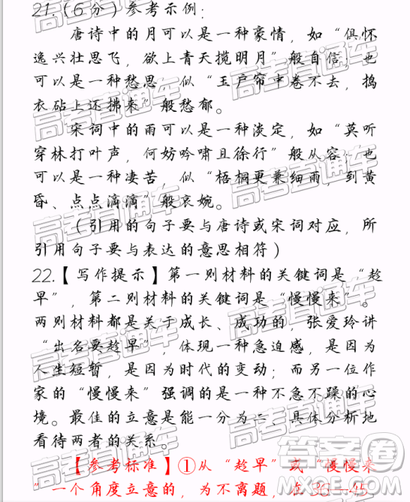 21.（6分）参考示例：
唐诗中的月可以是一种豪情，如“俱怀
逸兴壮思飞，欲上青天揽明月”般自信；也
可以是一种愁思，似“玉户帘中卷不去，捣
衣砧上还拂来”般愁郁。
宋词中的雨可以是一种淡定，如“莫听
穿林打叶声，何妨吟啸且徐行”般从容；也可
以是一种凄苦，似“梧桐更兼细雨，到黄
昏、点点滴滴”般哀婉。
（引用的句子要与唐诗或宋词对应，所
引用句子要与表达的意思相符）
22.【写作提示】第一则材料的关键词是“趁
早”，第二则材料的关键词是“慢慢来”。
两则材料都是关于成长、成功的，张爱玲讲
“出名要趁早”，体现一种急迫感，是因为
人生短暂，是因为时代的变动；而另一位作
家的“慢慢来”强调的是一种不急不躁的心
境。最佳的立意是能一分为二、具体分析地
看待两者的关系。
【参考标准】①从“趁早”或“慢慢来
”一个角度立意的，为不离题，